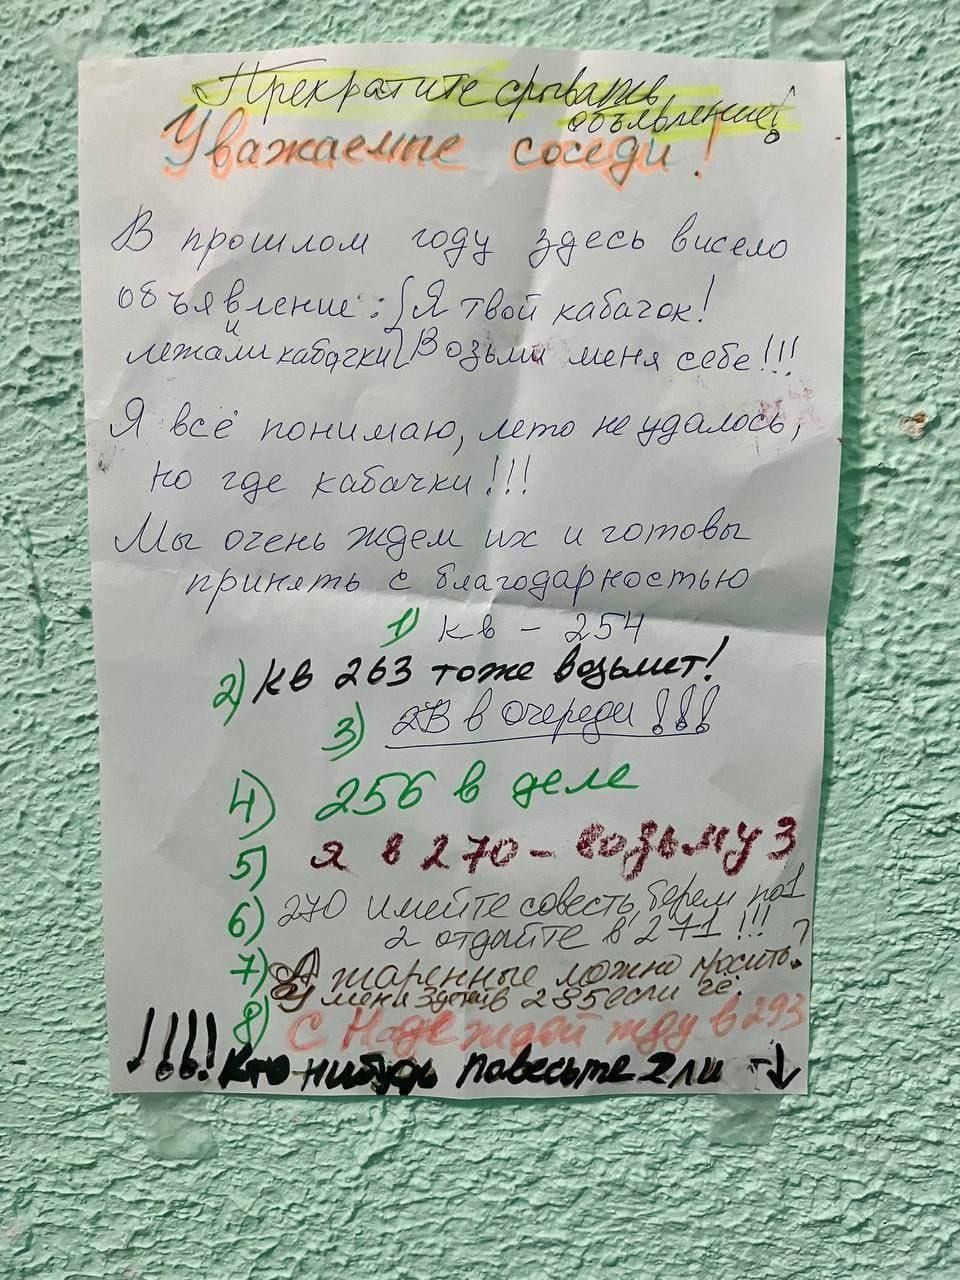 Прекратите срывать
объявление!
Уважаемые соседи!
В прошлом году здесь висело
объявление: Я твой кабачок!
и
лежали кабачки Возьми меня себе!!!
Я всё понимаю, лето не удалось,
но где кабачки!!!
Мы очень ждем их и готовы
принять с благодарностью
1) кв - 254
2) кв 263 тоже возьмет!
3) в очереди!!!
4) 256 в деле
5) Я в 270 - возьму 3
6) 270 имейте совесть, берем по 1
2 отдайте в 271!!!
7) А жаренные можно просить?
У меня в 235 если чё.
8) С Надеждой жду в 293
!!!! Кто нибудь повесьте 2 ли